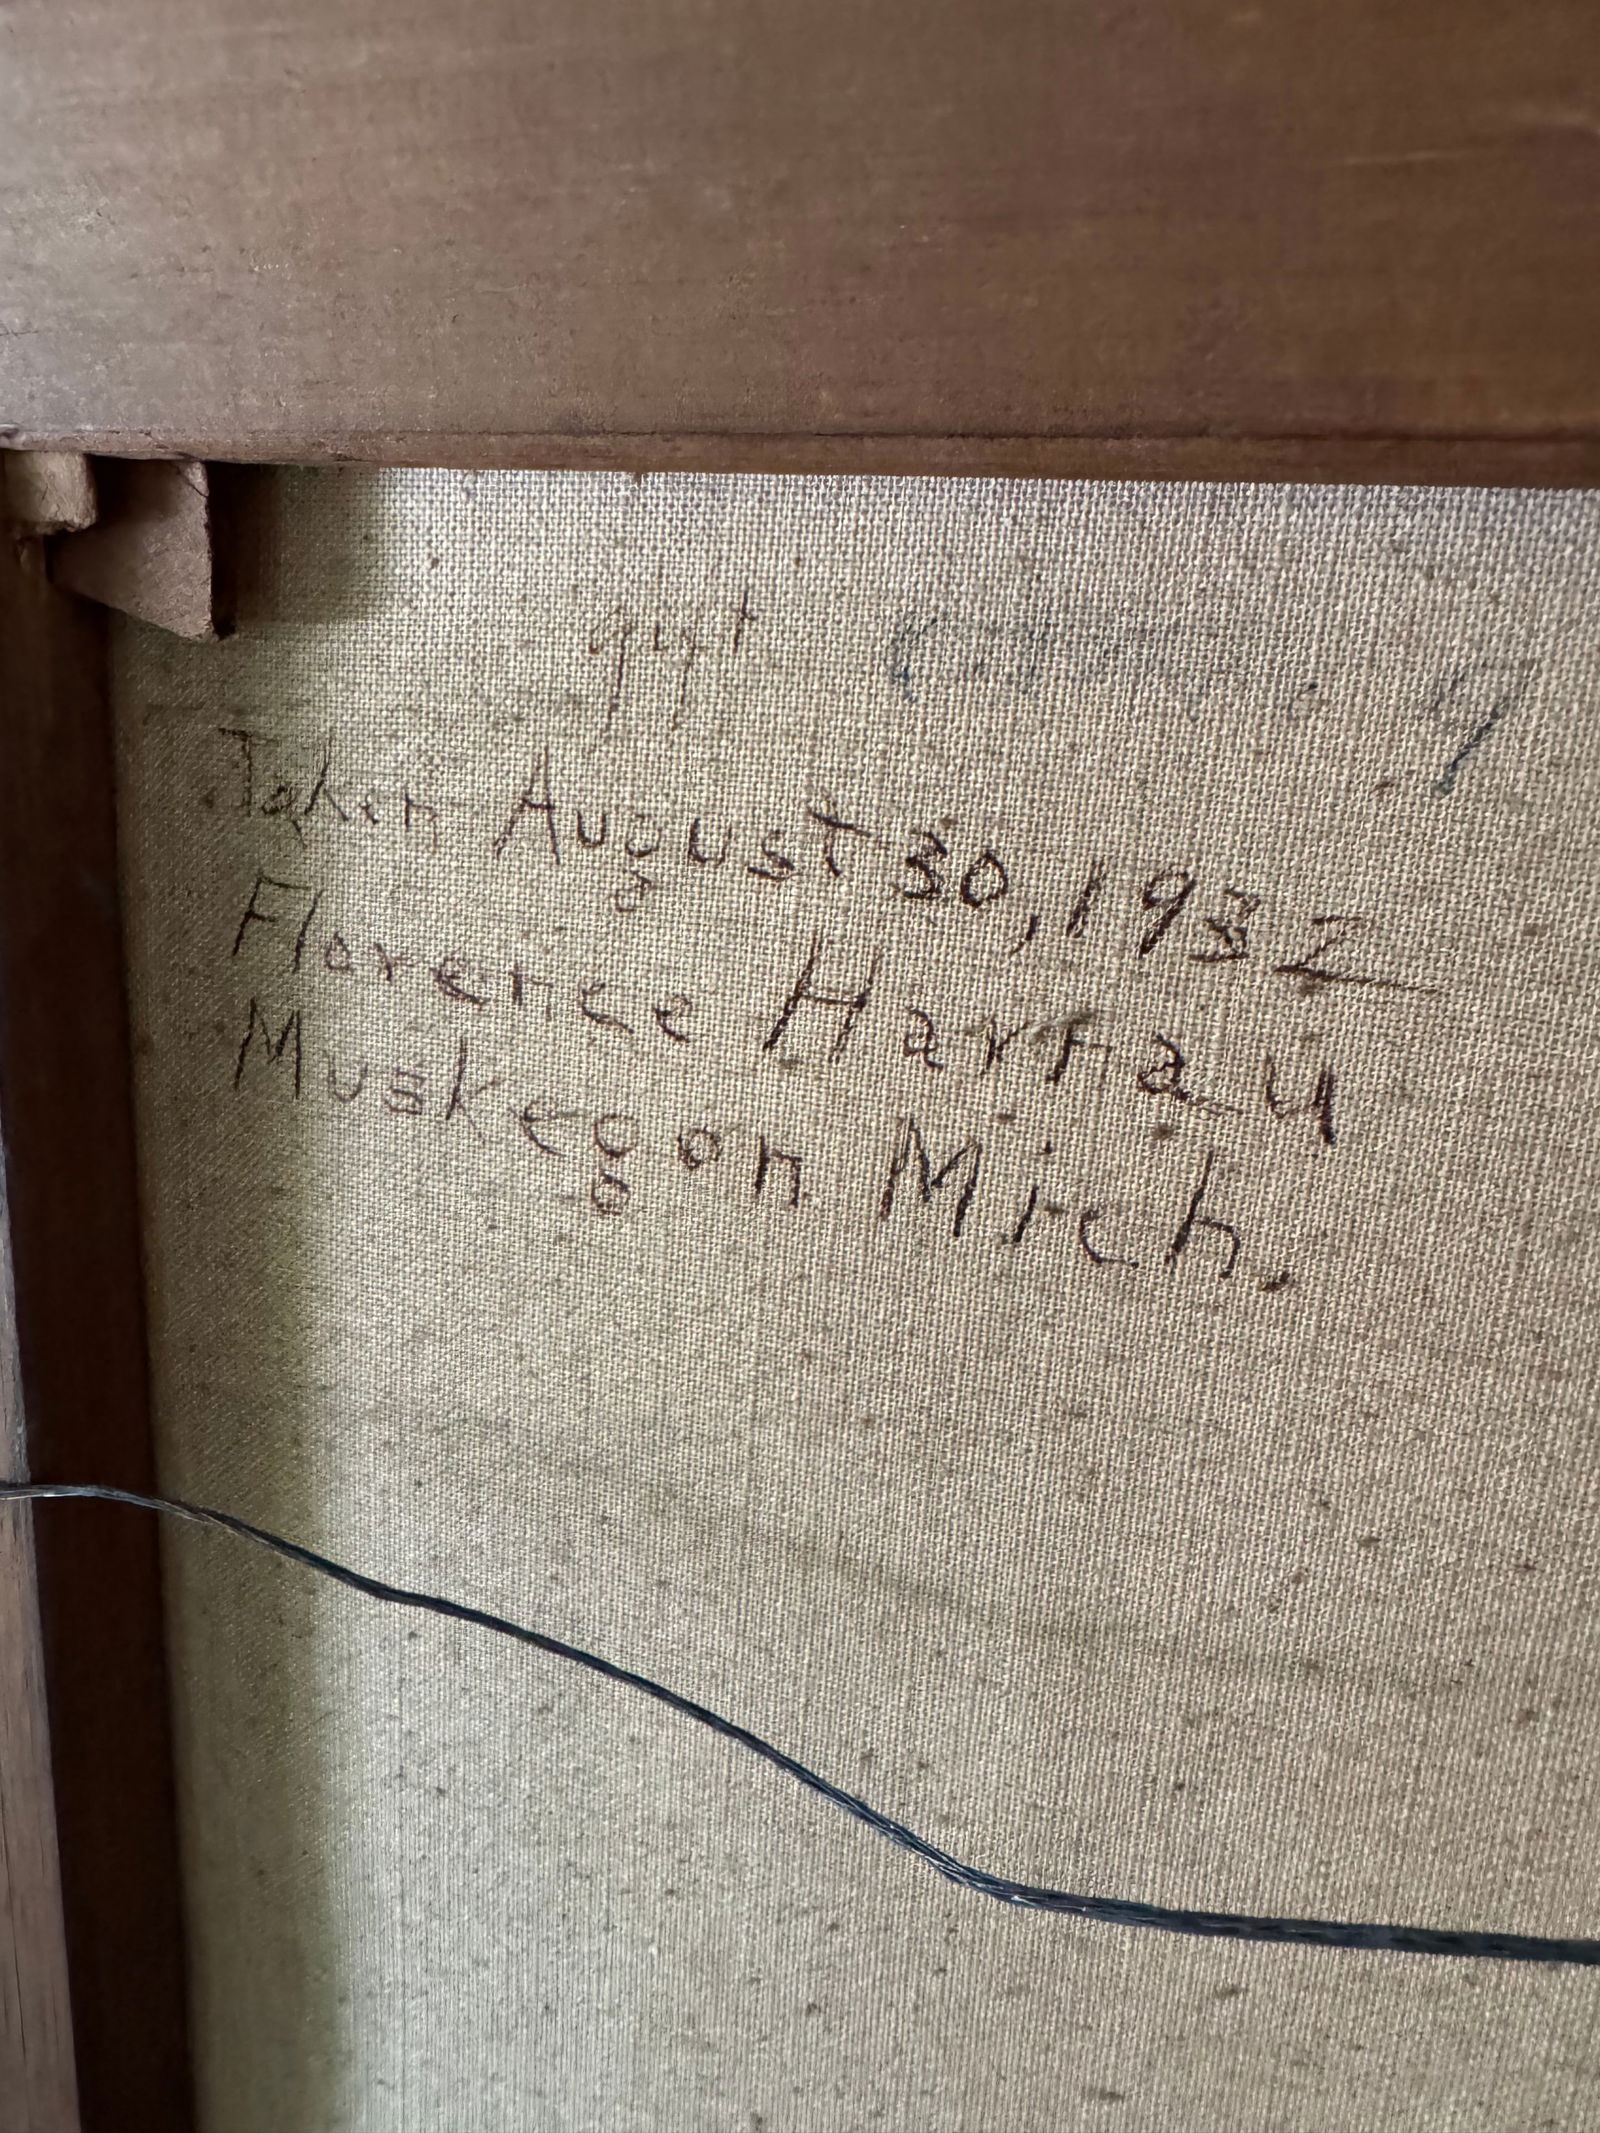 Taken August 30, 1932
Florence Harnau
Muskegon Mich.